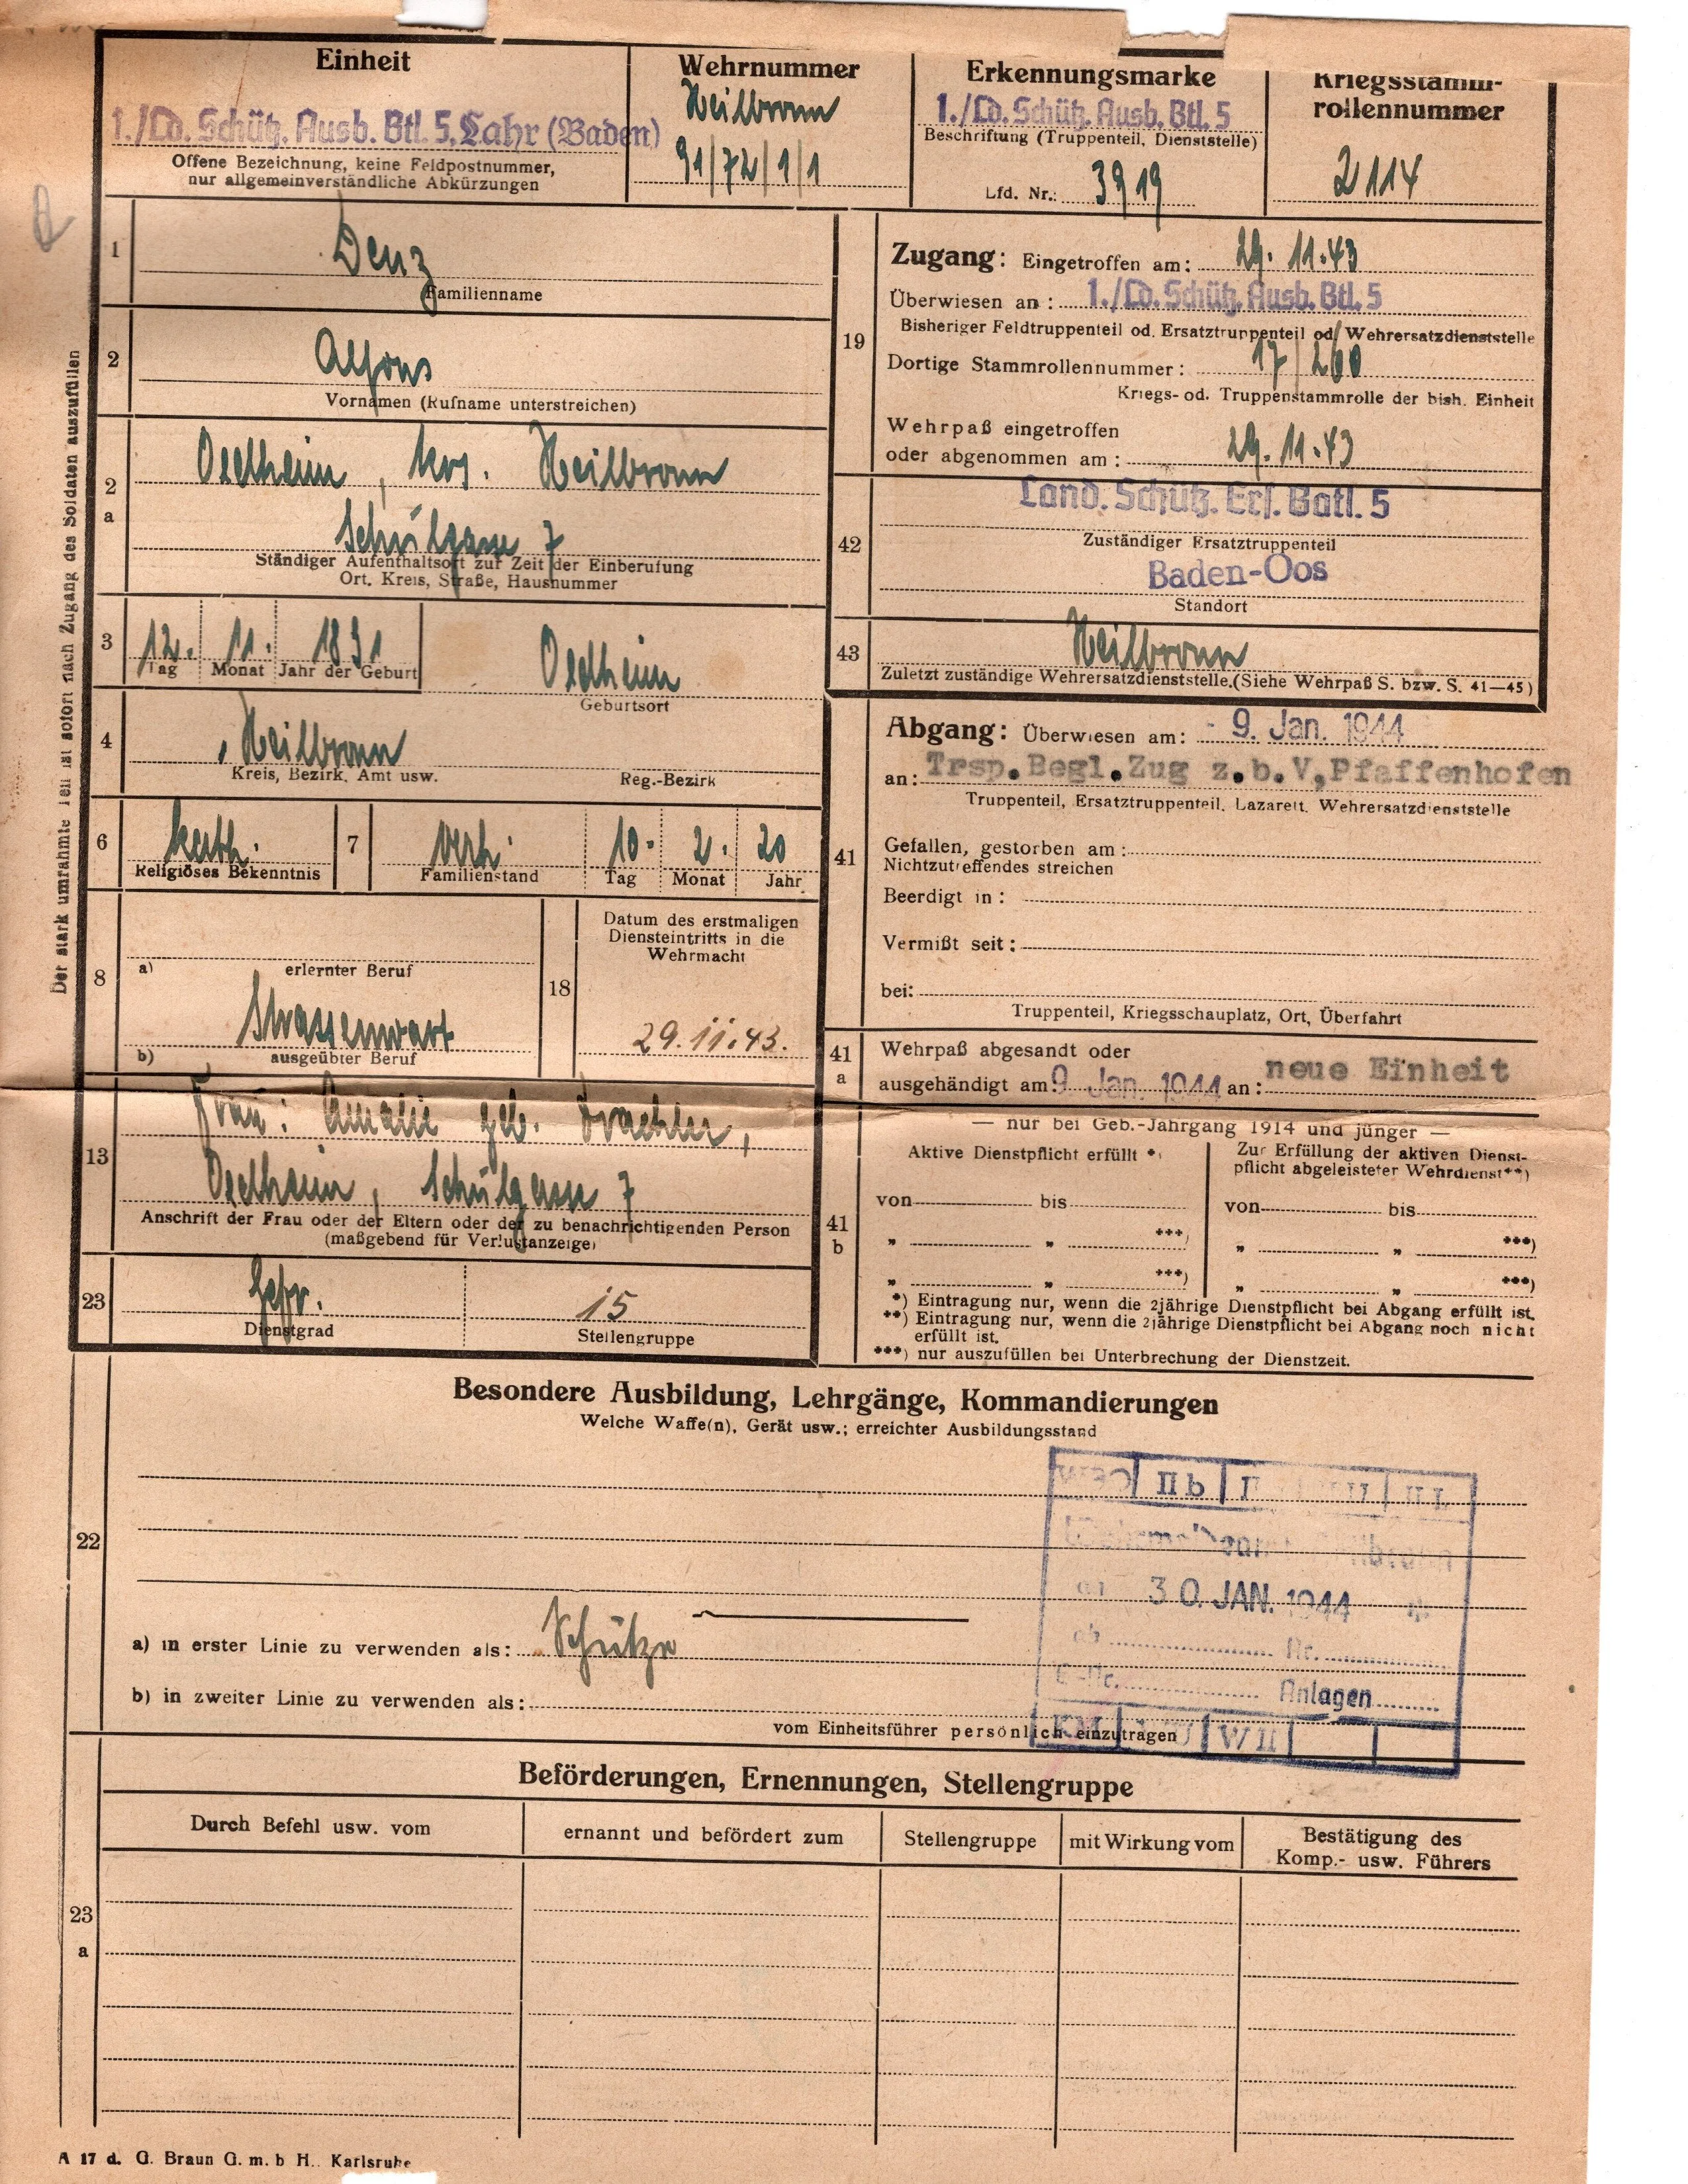 Einheit
1./Ld. Schütz. Ausb. Btl. 5, Lahr (Baden)
Offene Bezeichnung, keine Feldpostnummer,
nur allgemeinverständliche Abkürzungen
Wehrnummer
Heilbronn
91/72/1/1
Erkennungsmarke
1./Ld. Schütz. Ausb. Btl. 5
Beschriftung (Truppenteil, Dienststelle)
Lfd. Nr.: 3919
Kriegsstamm-
rollennummer
2114
Der stark umrahmte Teil ist sofort nach Zugang des Soldaten auszufüllen
1
Denz
Familienname
2
Alfons
Vornamen (Rufname unterstreichen)
2
a
Oedheim, Krs. Heilbronn
Schulgasse 7
Ständiger Aufenthaltsort zur Zeit der Einberufung
Ort, Kreis, Straße, Hausnummer
3
12. 11. 1891
Tag Monat Jahr der Geburt
Oedheim
Geburtsort
4
Heilbronn
Kreis, Bezirk, Amt usw. Reg.-Bezirk
6
kath.
Religiöses Bekenntnis
7
verh. 10. 2. 20
Familienstand Tag Monat Jahr
8
a) erlernter Beruf
Strassenwart
b) ausgeübter Beruf
18
Datum des erstmaligen
Diensteintritts in die
Wehrmacht
29.11.43.
13
Frau: Amalie geb.
Oedheim, Schulgasse 7
Anschrift der Frau oder der Eltern oder der zu benachrichtigenden Person
(maßgebend für Verlustanzeige)
23
Gefr. 15
Dienstgrad Stellengruppe
19
Zugang: Eingetroffen am: 29. 11.43
Überwiesen an: 1./Ld. Schütz. Ausb. Btl. 5
Bisheriger Feldtruppenteil od. Ersatztruppenteil od. Wehrersatzdienststelle
Dortige Stammrollennummer: 17/260
Kriegs- od. Truppenstammrolle der bish. Einheit
Wehrpaß eingetroffen
oder abgenommen am: 29. 11.43
42
Land. Schütz. Ers. Batl. 5
Zuständiger Ersatztruppenteil
Baden-Oos
Standort
43
Heilbronn
Zuletzt zuständige Wehrersatzdienststelle.(Siehe Wehrpaß S. bzw. S. 41—45)
41
Abgang: Überwiesen am: - 9. Jan. 1944
an: Trsp.Begl.Zug z.b.V,Pfaffenhofen
Truppenteil, Ersatztruppenteil, Lazarett, Wehrersatzdienststelle
Gefallen, gestorben am:
Nichtzutreffendes streichen
Beerdigt in:
Vermißt seit:
bei:
Truppenteil, Kriegsschauplatz, Ort, Überfahrt
41
a
Wehrpaß abgesandt oder
ausgehändigt am 9. Jan. 1944 an: neue Einheit
41
b
— nur bei Geb.-Jahrgang 1914 und jünger —
Aktive Dienstpflicht erfüllt *)
Zur Erfüllung der aktiven Dienst-
pflicht abgeleisteter Wehrdienst**)
von bis von bis
„ „ ***) „ „ ***)
„ „ ***) „ „ ***)
*) Eintragung nur, wenn die 2jährige Dienstpflicht bei Abgang erfüllt ist.
**) Eintragung nur, wenn die 2jährige Dienstpflicht bei Abgang noch nicht
erfüllt ist.
***) nur auszufüllen bei Unterbrechung der Dienstzeit.
22
Besondere Ausbildung, Lehrgänge, Kommandierungen
Welche Waffe(n), Gerät usw.; erreichter Ausbildungsstand
IIb
30. JAN. 1944
ab Nr.
Anlagen
WII
a) in erster Linie zu verwenden als: Schütze
b) in zweiter Linie zu verwenden als:
vom Einheitsführer persönlich einzutragen
Beförderungen, Ernennungen, Stellengruppe
Durch Befehl usw. vom ernannt und befördert zum Stellengruppe mit Wirkung vom Bestätigung des
Komp.- usw. Führers
23
a
A 17 d. G. Braun G. m. b H., Karlsruhe